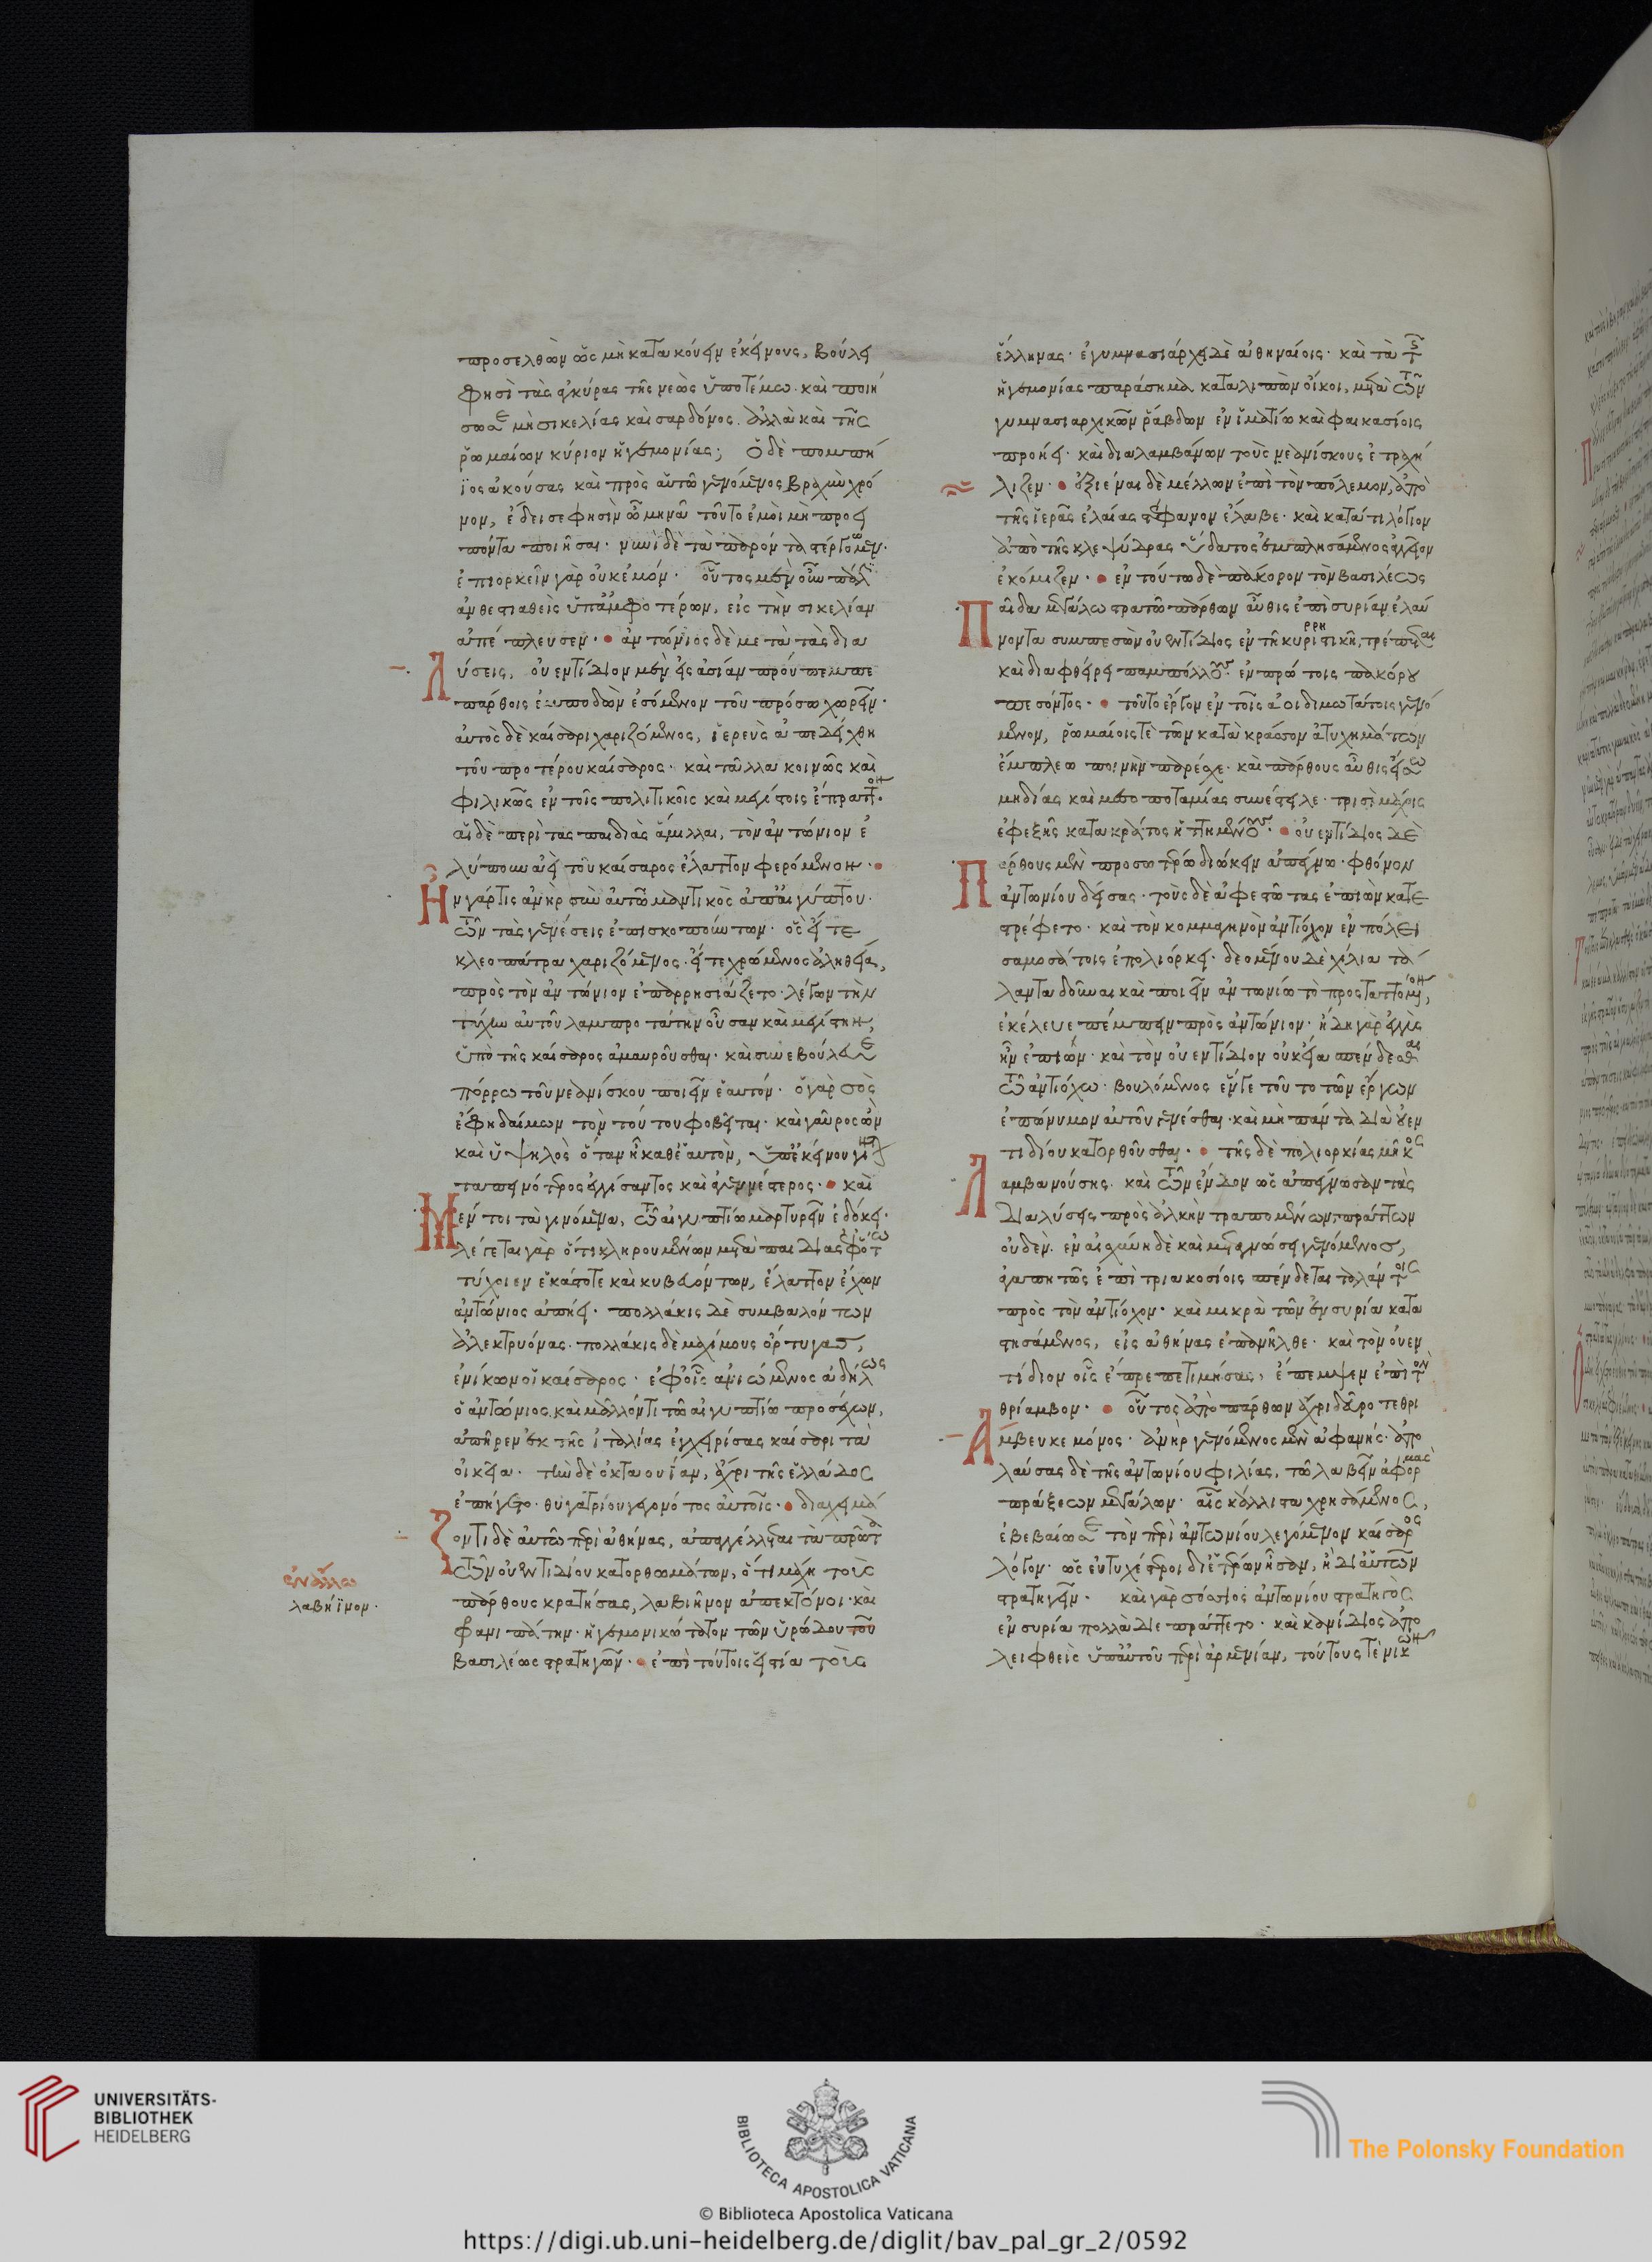 προσελθὼν ὡς μὴ κατακούειν ἐκείνους, βούλει
φησὶ τὰς ἀγκύρας τῆς νεὼς ὑποτέμω. καὶ ποιή
σω σε μὴ σικελίας καὶ σαρδόνος. ἀλλὰ καὶ τῆς
ῥωμαίων κύριον ἡγεμονίας; ὁ δὲ πομπή
ϊος ἀκούσας καὶ πρὸς αὑτῷ γενόμενος βραχὺν χρό
νον, ἔδει σε φησὶν ὦ μηνᾶ τοῦτο ἐμοὶ μὴ προει
πόντα ποιῆσαι. νυνὶ δὲ τὰ παρόντα στέργωμεν.
ἐπιορκεῖν γὰρ οὐκ ἐμόν. οὗτος μὲν οὖν πάλιν
ἀνθεστιαθεὶς ὑπ' ἀμφοτέρων, εἰς τὴν σικελίαν
ἀπέπλευσεν. ἀντώνιος δὲ μετὰ τὰς δια
λύσεις, οὐεντίδιον μὲν εἰς ἀσίαν προὔπεμπε
πάρθοις ἐμποδὼν ἐσόμενον τοῦ πρόσω χωρεῖν.
αὐτὸς δὲ καίσαρι χαριζόμενος, ἱερεὺς ἀπεδείχθη
τοῦ προτέρου καίσαρος. καὶ τἄλλα κοινῶς καὶ
φιλικῶς ἐν τοῖς πολιτικοῖς καὶ μεγίστοις ἔπραττον.
αἱ δὲ περὶ τὰς παιδιὰς ἅμιλλαι, τὸν ἀντώνιον ἐ
λύπουν ἀεὶ τοῦ καίσαρος ἔλαττον φερόμενον.
Ἦν γάρ τις ἀνὴρ σὺν αὐτῷ μαντικὸς ἀπ' αἰγύπτου.
τῶν τὰς γενέσεις ἐπισκοπούντων. ὃς εἴτε
κλεοπάτρα χαριζόμενος. εἴτε χρώμενος ἀληθείᾳ,
πρὸς τὸν ἀντώνιον ἐπαρρησιάζετο. λέγων τὴν
τύχην αὐτοῦ λαμπροτάτην οὖσαν καὶ μεγίστην,
ὑπὸ τῆς καίσαρος ἀμαυροῦσθαι. καὶ συνεβούλευε
πόρρω τοῦ νεανίσκου ποιεῖν ἑαυτόν. ὁ γὰρ σὸς
ἔφη δαίμων τὸν τούτου φοβεῖται. καὶ γαῦρος ὢν
καὶ ὑψηλὸς ὅταν ᾖ καθ' ἑαυτὸν, ὑπ' ἐκείνου γίνεται
ταπεινότερος ἐγγίσαντος καὶ ἀγεννέστερος. καὶ
Μέντοι τὰ γινόμενα, τῷ αἰγυπτίῳ μαρτυρεῖν ἐδόκει.
λέγεται γὰρ ὅτι κληρουμένων μετὰ παιδιᾶς ἐφ' ὅτῳ
τύχοιεν ἑκάστοτε καὶ κυβευόντων, ἔλαττον ἔχων
ἀντώνιος ἀπῄει. πολλάκις δὲ συμβαλόντων
ἀλεκτρυόνας. πολλάκις δὲ μαχίμους ὄρτυγας,
ἐνίκων οἱ καίσαρος. ἐφ' οἷς ἀνιώμενος ἀδήλως
ὁ ἀντώνιος, καὶ μᾶλλόν τι τῷ αἰγυπτίῳ προσέχων,
ἀπῆρεν ἐκ τῆς ἰταλίας ἐγχειρίσας καίσαρι τὰ
οἰκεῖα. τὴν δὲ ὀκταουΐαν, ἄχρι τῆς ἑλλάδος
ἐπήγετο. θυγατρίου γεγονότος αὐτοῖς. διαχειμά
ζοντι δὲ αὐτῷ περὶ ἀθήνας, ἀπαγγέλλεται τὰ πρῶτα
τῶν οὐεντιδίου κατορθωμάτων, ὅτι μάχῃ τοὺς
πάρθους κρατήσας, λαβιῆνον ἀπεκτόνοι. καὶ
φανιπάτην. ἡγεμονικώτατον τῶν ὑρώδου τοῦ
βασιλέως στρατηγῶν. ἐπὶ τούτοις εἱστία τοὺς
ἐν ἄλλῳ
λαβήϊνον.
ἕλληνας. ἐγυμνασιάρχει δὲ ἀθηναίοις. καὶ τὰ τῆς
ἡγεμονίας παράσημα καταλιπὼν οἴκοι, μετὰ τῶν
γυμνασιαρχικῶν ῥάβδων ἐν ἱματίῳ καὶ φαικασίοις
προῄει. καὶ διαλαμβάνων τοὺς νεανίσκους ἐτραχή
λιζεν. ἐξιέναι δὲ μέλλων ἐπὶ τὸν πόλεμον, ἀπὸ
τῆς ἱερᾶς ἐλαίας στέφανον ἔλαβε. καὶ κατά τι λόγιον
ἀπὸ τῆς κλεψύδρας ὕδατος ἐμπλησάμενος ἀγγεῖον
ἐκόμιζεν. ἐν τούτῳ δὲ πάκορον τὸν βασιλέως
Παῖδα μεγάλῳ στρατῷ πάρθων αὖθις ἐπὶ συρίαν ἐλαύ
νοντα συμπεσὼν οὐεντίδιος ἐν τῇ κυρρηστικῇ, τρέπεται
καὶ διαφθείρει παμπόλλους. ἐν πρώτοις πακόρου
πεσόντος. τοῦτο ἔργον ἐν τοῖς ἀοιδιμωτάτοις γενό
μενον, ῥωμαίοις τε τῶν κατὰ κράσσον ἀτυχημάτων
ἔμπλεω ποινὴν παρέσχε. καὶ πάρθους αὖθις εἴσω
μηδίας καὶ μεσοποταμίας συνέστειλε. τρισὶ μάχαις
ἐφεξῆς κατὰ κράτος ἡττημένους. οὐεντίδιος δὲ
Πάρθους μὲν προσωτέρω διώκειν ἀπέγνω. φθόνον
ἀντωνίου δείσας. τοὺς δὲ ἀφεστῶτας ἐπιὼν κατε
στρέφετο. καὶ τὸν κομμαγηνὸν ἀντίοχον ἐν πόλει
σαμοσάτοις ἐπολιόρκει. δεομένου δὲ χίλια τά
λαντα δοῦναι καὶ ποιεῖν ἀντωνίῳ τὸ προσταττόμενον,
ἐκέλευε πέμπειν πρὸς ἀντώνιον. ἤδη γὰρ ἐγγὺς
ἦν ἐπιών. καὶ τὸν οὐεντίδιον οὐκ εἴα σπένδεσθαι
τῷ ἀντιόχῳ. βουλόμενος ἕν γε τοῦτο τῶν ἔργων
ἐπώνυμον αὐτοῦ γενέσθαι. καὶ μὴ πάντα διὰ οὐεν
τιδίου κατορθοῦσθαι. τῆς δὲ πολιορκίας μῆκος
Λαμβανούσης. καὶ τῶν ἔνδον ὡς ἀπέγνωσαν τὰς
διαλύσεις, πρὸς ἀλκὴν τραπομένων, πράττων
οὐδέν. ἐν αἰσχύνῃ δὲ καὶ μεταγνώσει γενόμενος,
ἀγαπητῶς ἐπὶ τριακοσίοις σπένδεται ταλάντοις
πρὸς τὸν ἀντίοχον. καὶ μικρὰ τῶν ἐν συρίᾳ κατα
στησάμενος, εἰς ἀθήνας ἐπανῆλθε. καὶ τὸν οὐεν
τίδιον οἷς ἔπρεπε τιμήσας, ἔπεμψεν ἐπὶ τὸν
θρίαμβον. οὗτος ἀπὸ πάρθων ἄχρι δεῦρο τεθρι
Άμβευκε μόνος. ἀνὴρ γενόμενος μὲν ἀφανής. ἀπο
λαύσας δὲ τῆς ἀντωνίου φιλίας, τῷ λαβεῖν ἀφορμὰς
πράξεων μεγάλων. αἷς κάλλιστα χρησάμενος,
ἐβεβαίωσε τὸν περὶ ἀντωνίου λεγόμενον καίσαρος
λόγον. ὡς εὐτυχέστεροι δι' ἑτέρων ἦσαν, ἢ δι' αὑτῶν
στρατηγεῖν. καὶ γὰρ σόσσιος ἀντωνίου στρατηγὸς
ἐν συρίᾳ πολλὰ διεπράττετο. καὶ κανίδιος ἀπο
λειφθεὶς ὑπ' αὐτοῦ περὶ ἀρμενίαν, τούτους τε νικῶν
UNIVERSITÄTS-
BIBLIOTHEK
HEIDELBERG
BIBLIOTECA APOSTOLICA VATICANA
The Polonsky Foundation
© Biblioteca Apostolica Vaticana
https://digi.ub.uni-heidelberg.de/diglit/bav_pal_gr_2/0592